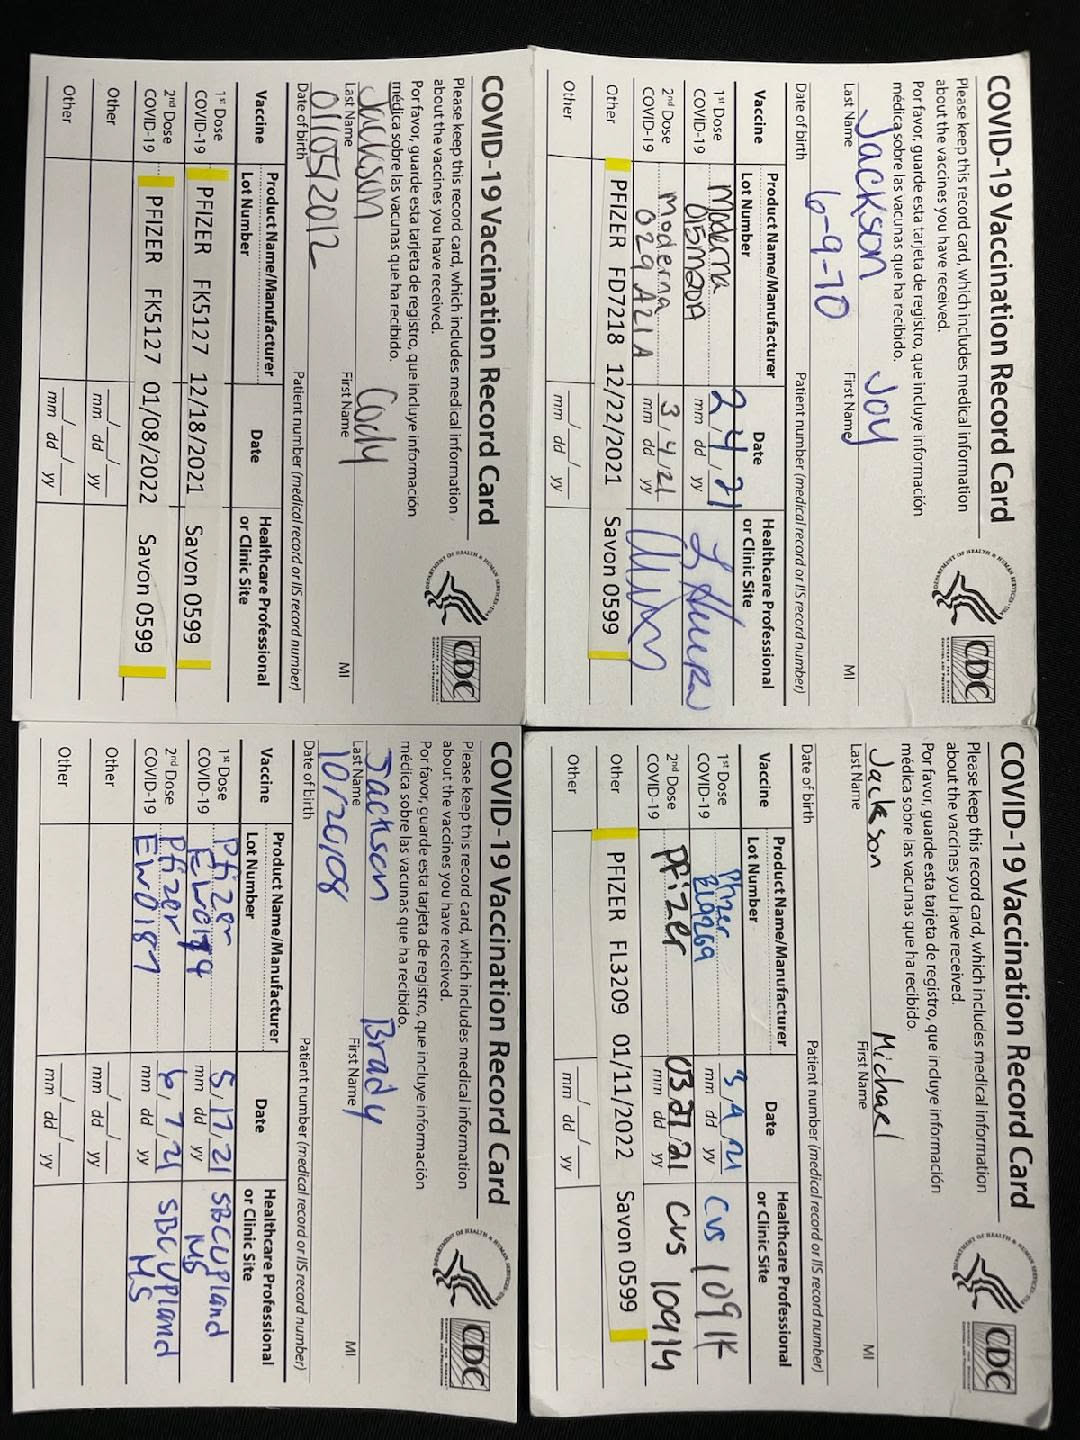 COVID-19 Vaccination Record Card
Please keep this record card, which includes medical information
about the vaccines you have received.
Por favor, guarde esta tarjeta de registro, que incluye información
médica sobre las vacunas que ha recibido.
CDC
Jackson Joy
Last Name First Name MI
6-9-70
Date of birth Patient number (medical record or IIS record number)
Vaccine Product Name/Manufacturer Date Healthcare Professional
Lot Number or Clinic Site
1st Dose Moderna 2/4/21
COVID-19 015M20A mm dd yy
2nd Dose Moderna 3/4/21
COVID-19 029A21A mm dd yy
Other PFIZER FD7218 12/22/2021 Savon 0599
Other
mm dd yy
COVID-19 Vaccination Record Card
Please keep this record card, which includes medical information
about the vaccines you have received.
Por favor, guarde esta tarjeta de registro, que incluye información
médica sobre las vacunas que ha recibido.
CDC
Jackson Michael
Last Name First Name MI
Date of birth Patient number (medical record or IIS record number)
Vaccine Product Name/Manufacturer Date Healthcare Professional
Lot Number or Clinic Site
1st Dose Pfizer 3/4/21 CVS
COVID-19 mm dd yy
2nd Dose Pfizer 03/27/21 CVS 10914
COVID-19 mm dd yy
Other PFIZER FL3209 01/11/2022 Savon 0599
Other
mm dd yy
COVID-19 Vaccination Record Card
Please keep this record card, which includes medical information
about the vaccines you have received.
Por favor, guarde esta tarjeta de registro, que incluye información
médica sobre las vacunas que ha recibido.
CDC
Jackson Cody
Last Name First Name MI
01/05/2012
Date of birth Patient number (medical record or IIS record number)
Vaccine Product Name/Manufacturer Date Healthcare Professional
Lot Number or Clinic Site
1st Dose
COVID-19 PFIZER FK5127 12/18/2021 Savon 0599
2nd Dose
COVID-19 PFIZER FK5127 01/08/2022 Savon 0599
Other
mm dd yy
Other
mm dd yy
COVID-19 Vaccination Record Card
Please keep this record card, which includes medical information
about the vaccines you have received.
Por favor, guarde esta tarjeta de registro, que incluye información
médica sobre las vacunas que ha recibido.
CDC
Jackson Brady
Last Name First Name MI
10/20/08
Date of birth Patient number (medical record or IIS record number)
Vaccine Product Name/Manufacturer Date Healthcare Professional
Lot Number or Clinic Site
1st Dose Pfizer 5/17/21 SBCUpland
COVID-19 mm dd yy MS
2nd Dose Pfizer 6/7/21 SBCUpland
COVID-19 EW0187 mm dd yy MS
Other
mm dd yy
Other
mm dd yy